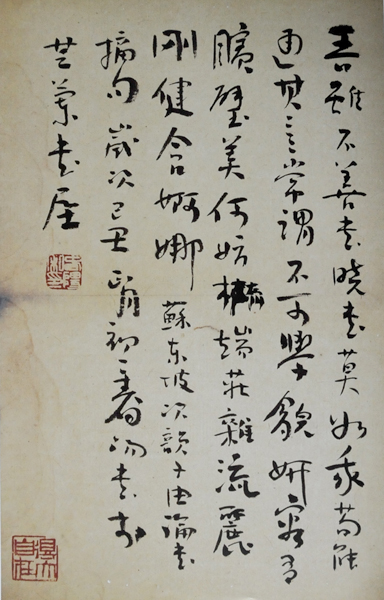 吾雖不善書曉書莫如我苟能
通其意常謂不可學貌妍容有
矉璧美何妨橢端莊雜流麗
剛健含婀娜 蘇東坡次韻子由論書
摘句歲次己丑初書於
蘭書屋
得大自在